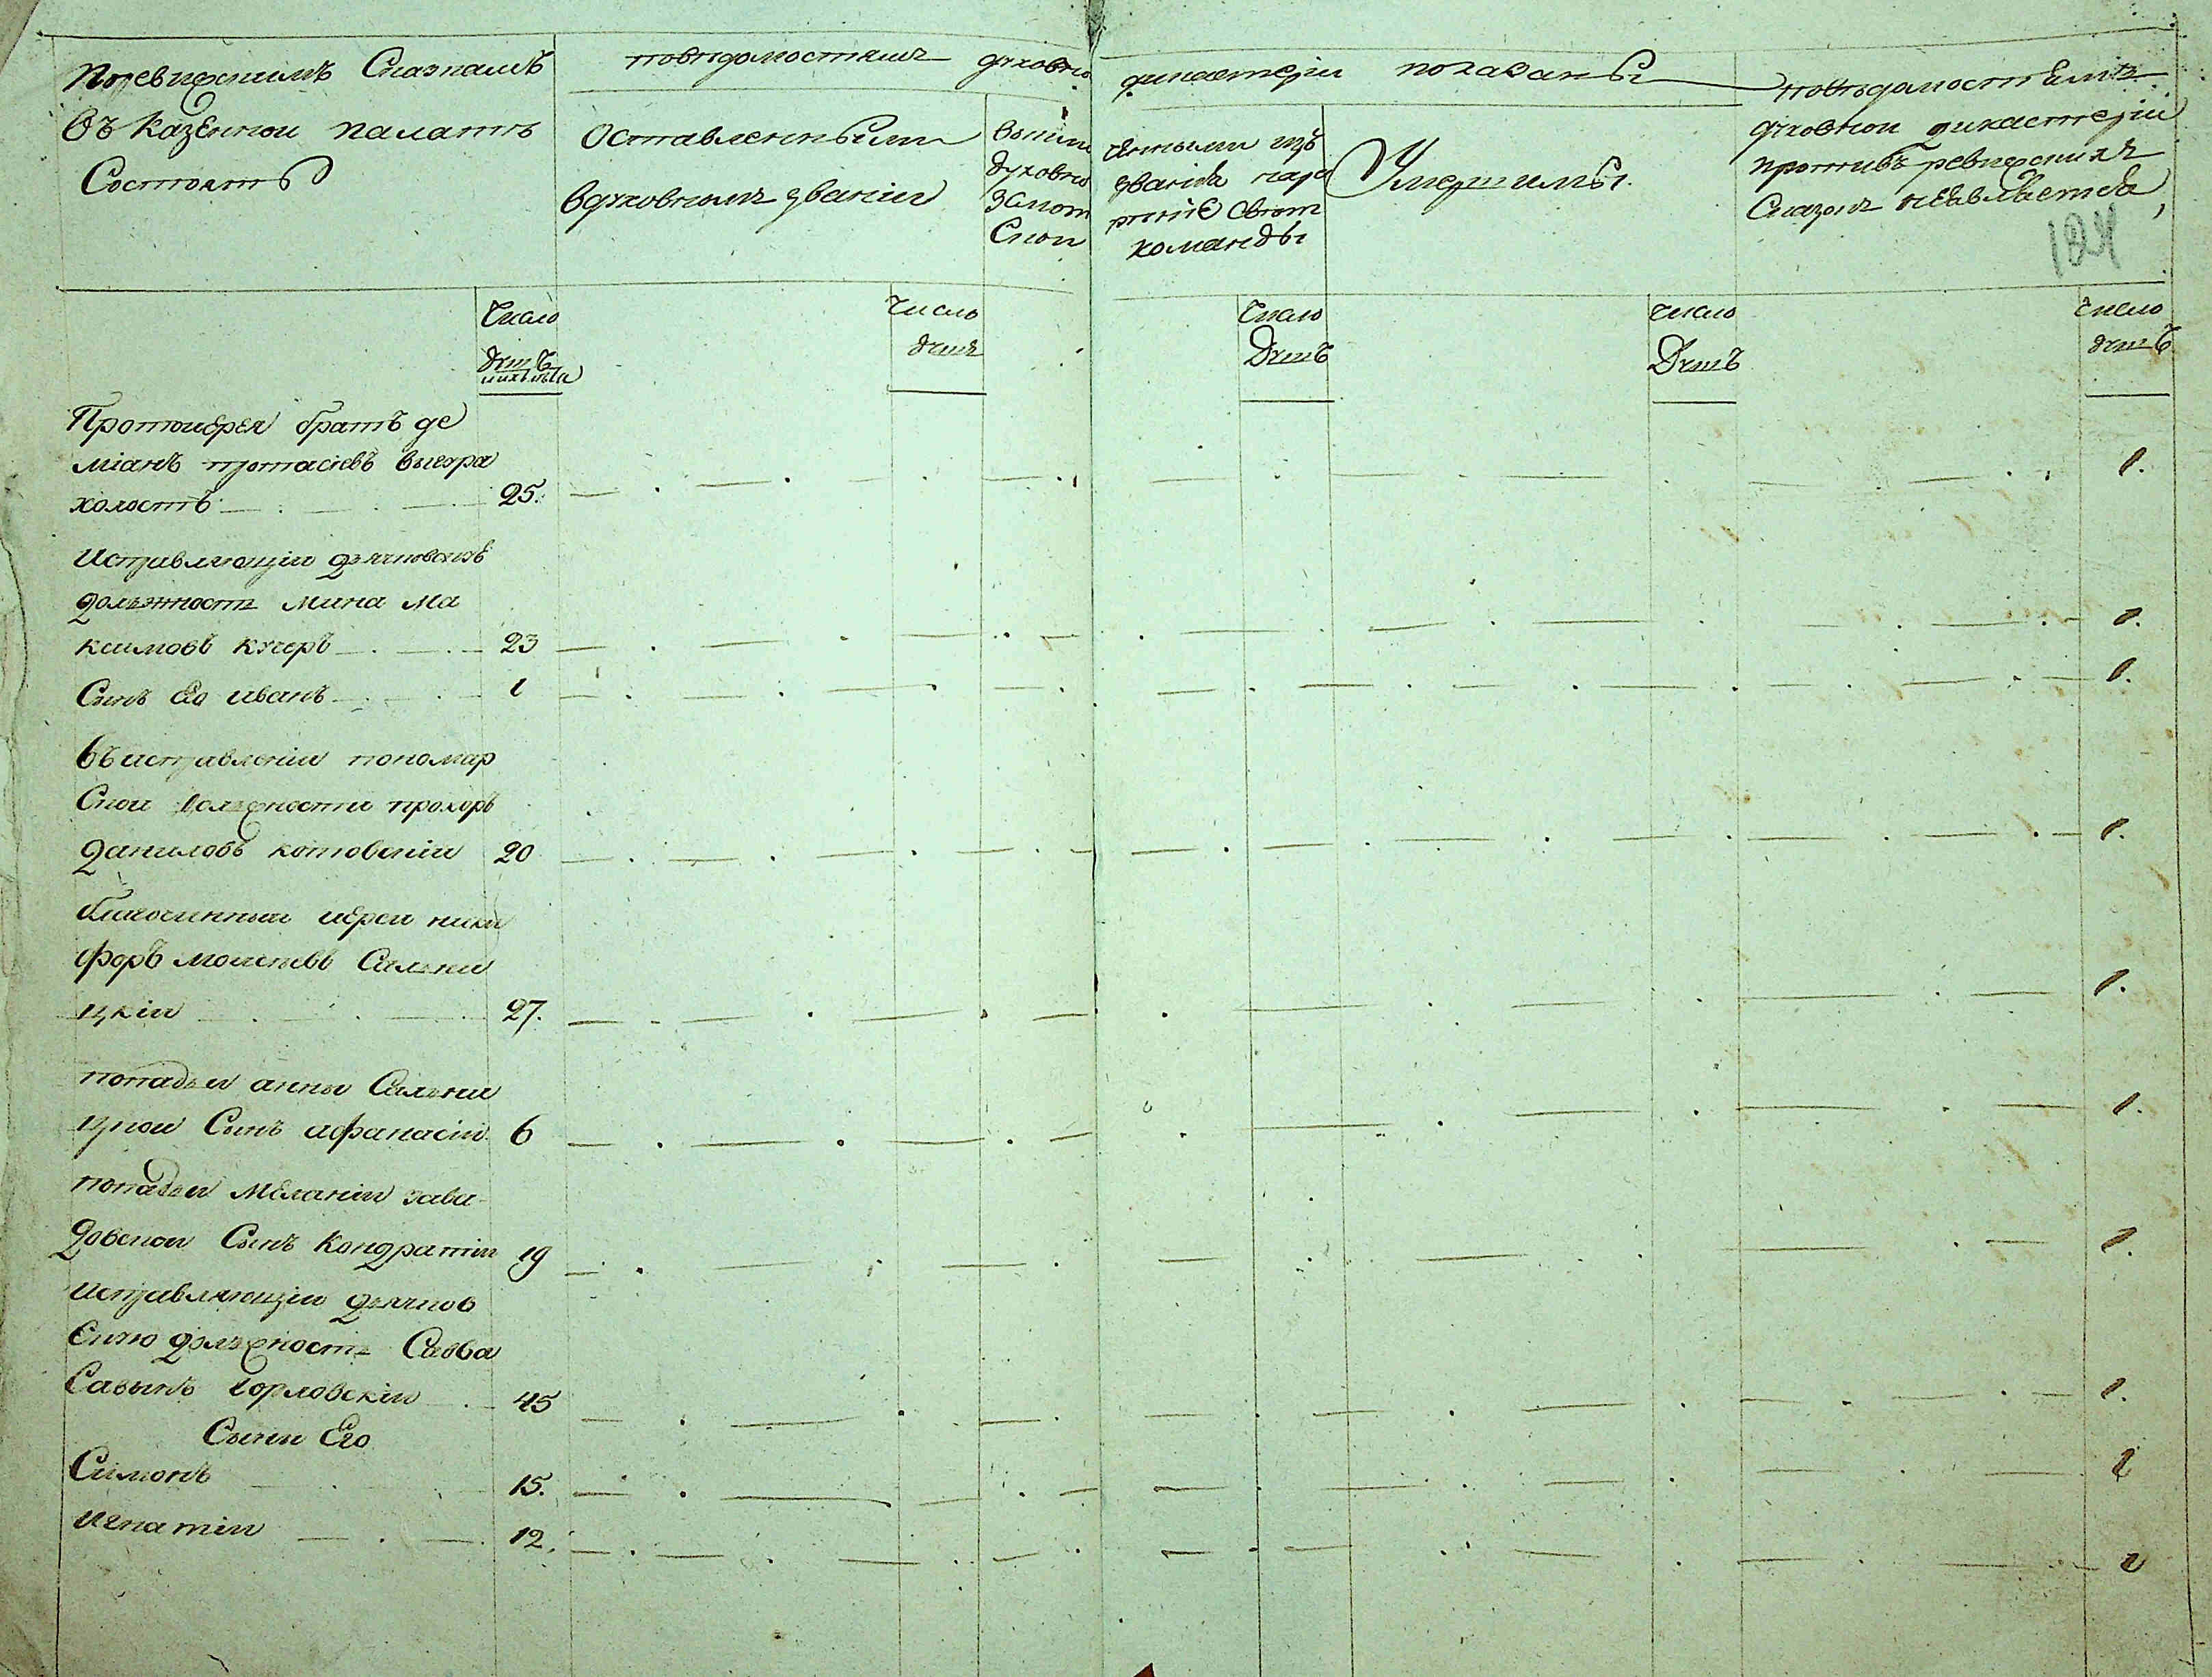 Поревизскимъ Сказкамъ
въ казенной палатѣ
Состоятъ
поведомостямъ духовно
дикастеріи показаны
Оставленными
вдуховномъ званіи
духовно
команды
Умершимы
поведомостямъ
духовной дикастеріи
противъ ревизскихъ
Сказокъ неявляется
Число
душъ
число
душъ
Число
Душъ
число
Душъ
число
душъ
Протоиерея братъ де
міанъ протасіевъ
холостъ 25. 1.
исправляющіи дьячковскхъ
должность мина ма
ксимовъ кучеръ 23 1.
Сынъ Его иванъ 1 1.
въ исправленіи пономар
Ской должности прохоръ
даниловъ котовскіи 20 1.
благочинныи иереи ники
форъ моисеевъ Сальни
цкіи 27. 1.
попадьи анны Сальни
цкои Сынъ афанасіи 6 1.
попадьи мелании зава
довскои Сынъ Кондратіи 19 1.
исправляющіи дьячков
скую должность Савва
Савынъ горловскіи 45 1.
Сыны Его
Симонъ 15. 1
игнатіи 12. 1